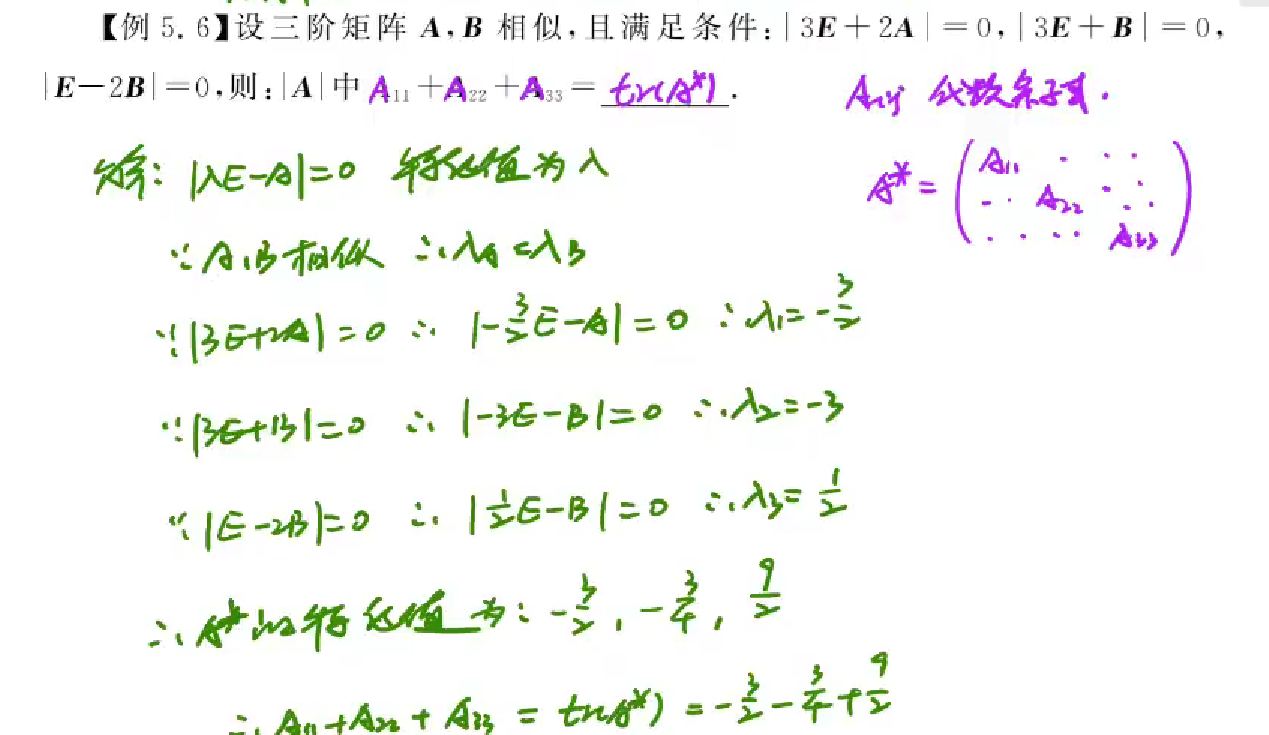 【例 5.6】设三阶矩阵 A,B 相似,且满足条件:|3E+2A|=0,|3E+B|=0,
|E-2B|=0,则:|A|中 A₁₁+A₂₂+A₃₃= tr(A*).
Aij 代数余子式.
A*=(A₁₁ · · ·
·· A₂₂ ·· ··
· · ·· A₃₃)
解: |λE-A|=0 特征值为λ
∵A,B相似 ∴λA=λB
∵|3E+2A|=0 ∴ |-3/2E-A|=0 ∴λ₁=-3/2
∵|3E+B|=0 ∴ |-3E-B|=0 ∴λ₂=-3
∵|E-2B|=0 ∴ |1/2E-B|=0 ∴λ₃=1/2
∴A*的特征值为: -3/2, -3/4, 9/2
∴A₁₁+A₂₂+A₃₃=tr(A*)=-3/2-3/4+9/2